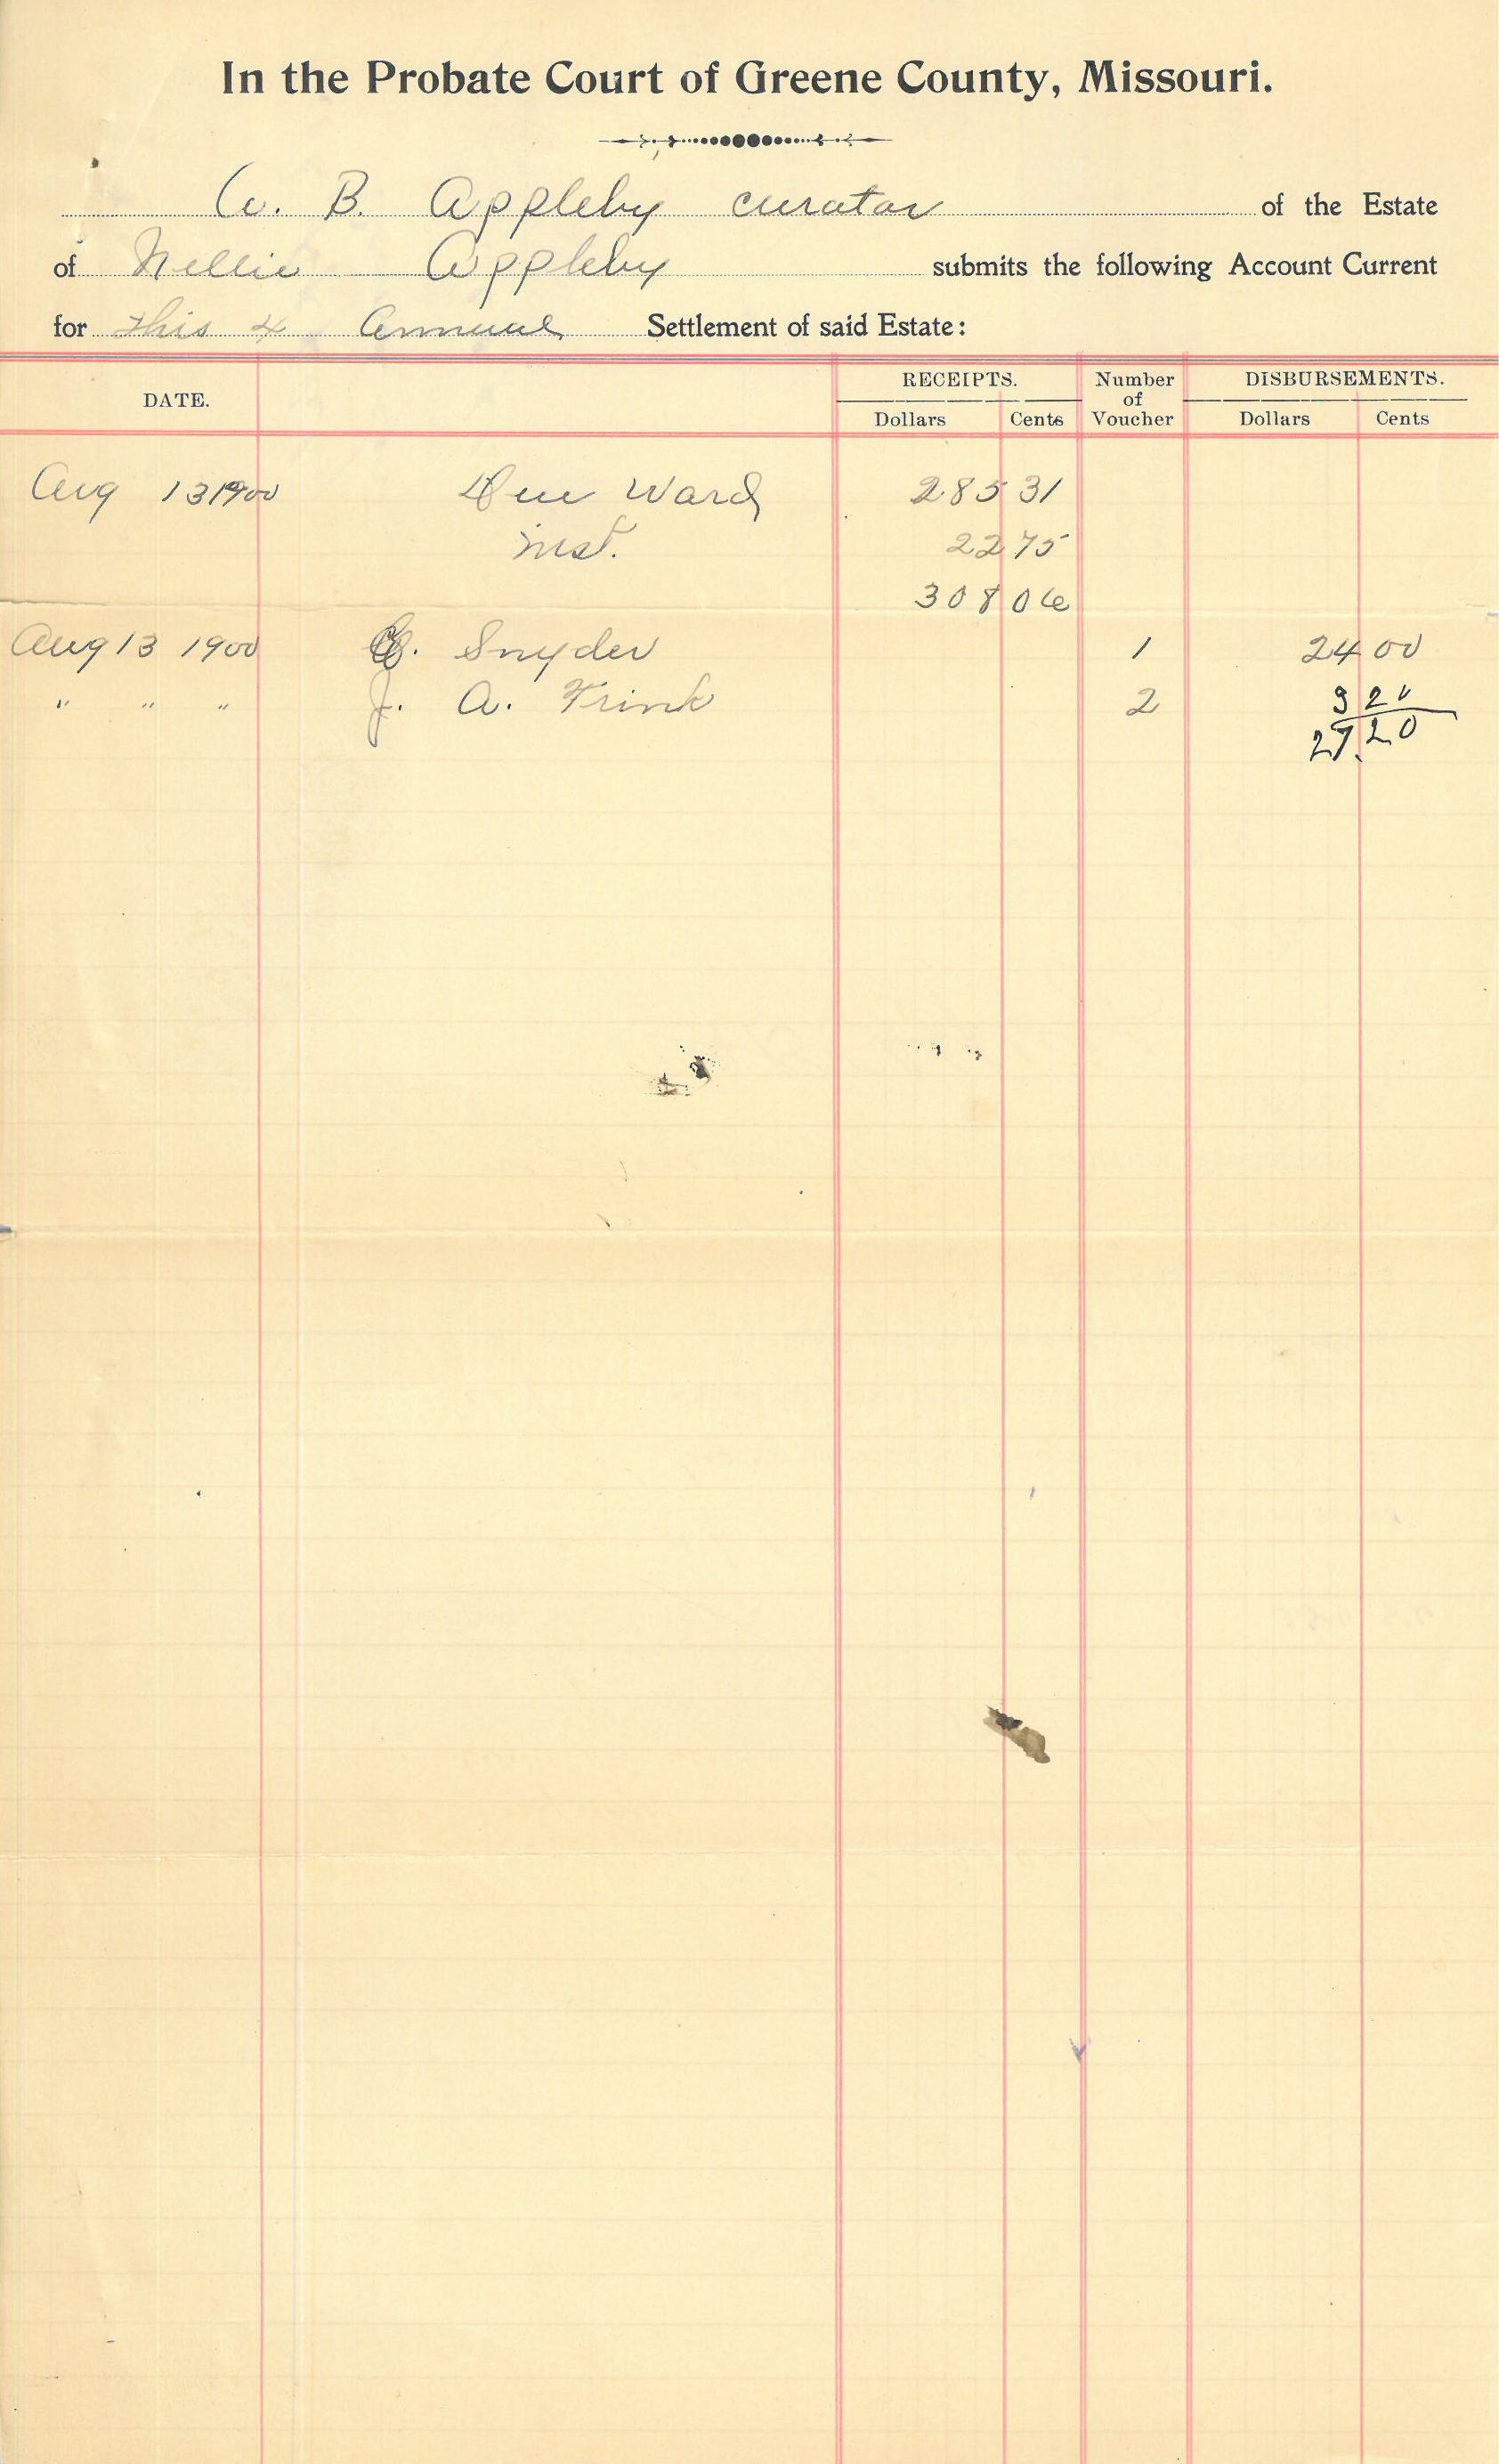 In the Probate Court of Greene County, Missouri.
B. Appleby curator of the Estate
of Nellie Appleby submits the following Account Current
for this 4 Annual Settlement of said Estate:
DATE. RECEIPTS. Number of Voucher DISBURSEMENTS.
Dollars Cents Dollars Cents
Aug 13 1900 Due Ward 285 31
inst. 22 75
308 06
Aug 13 1900 Snyder 1 24 00
" " " J. A. Frink 2 3 20
27.20